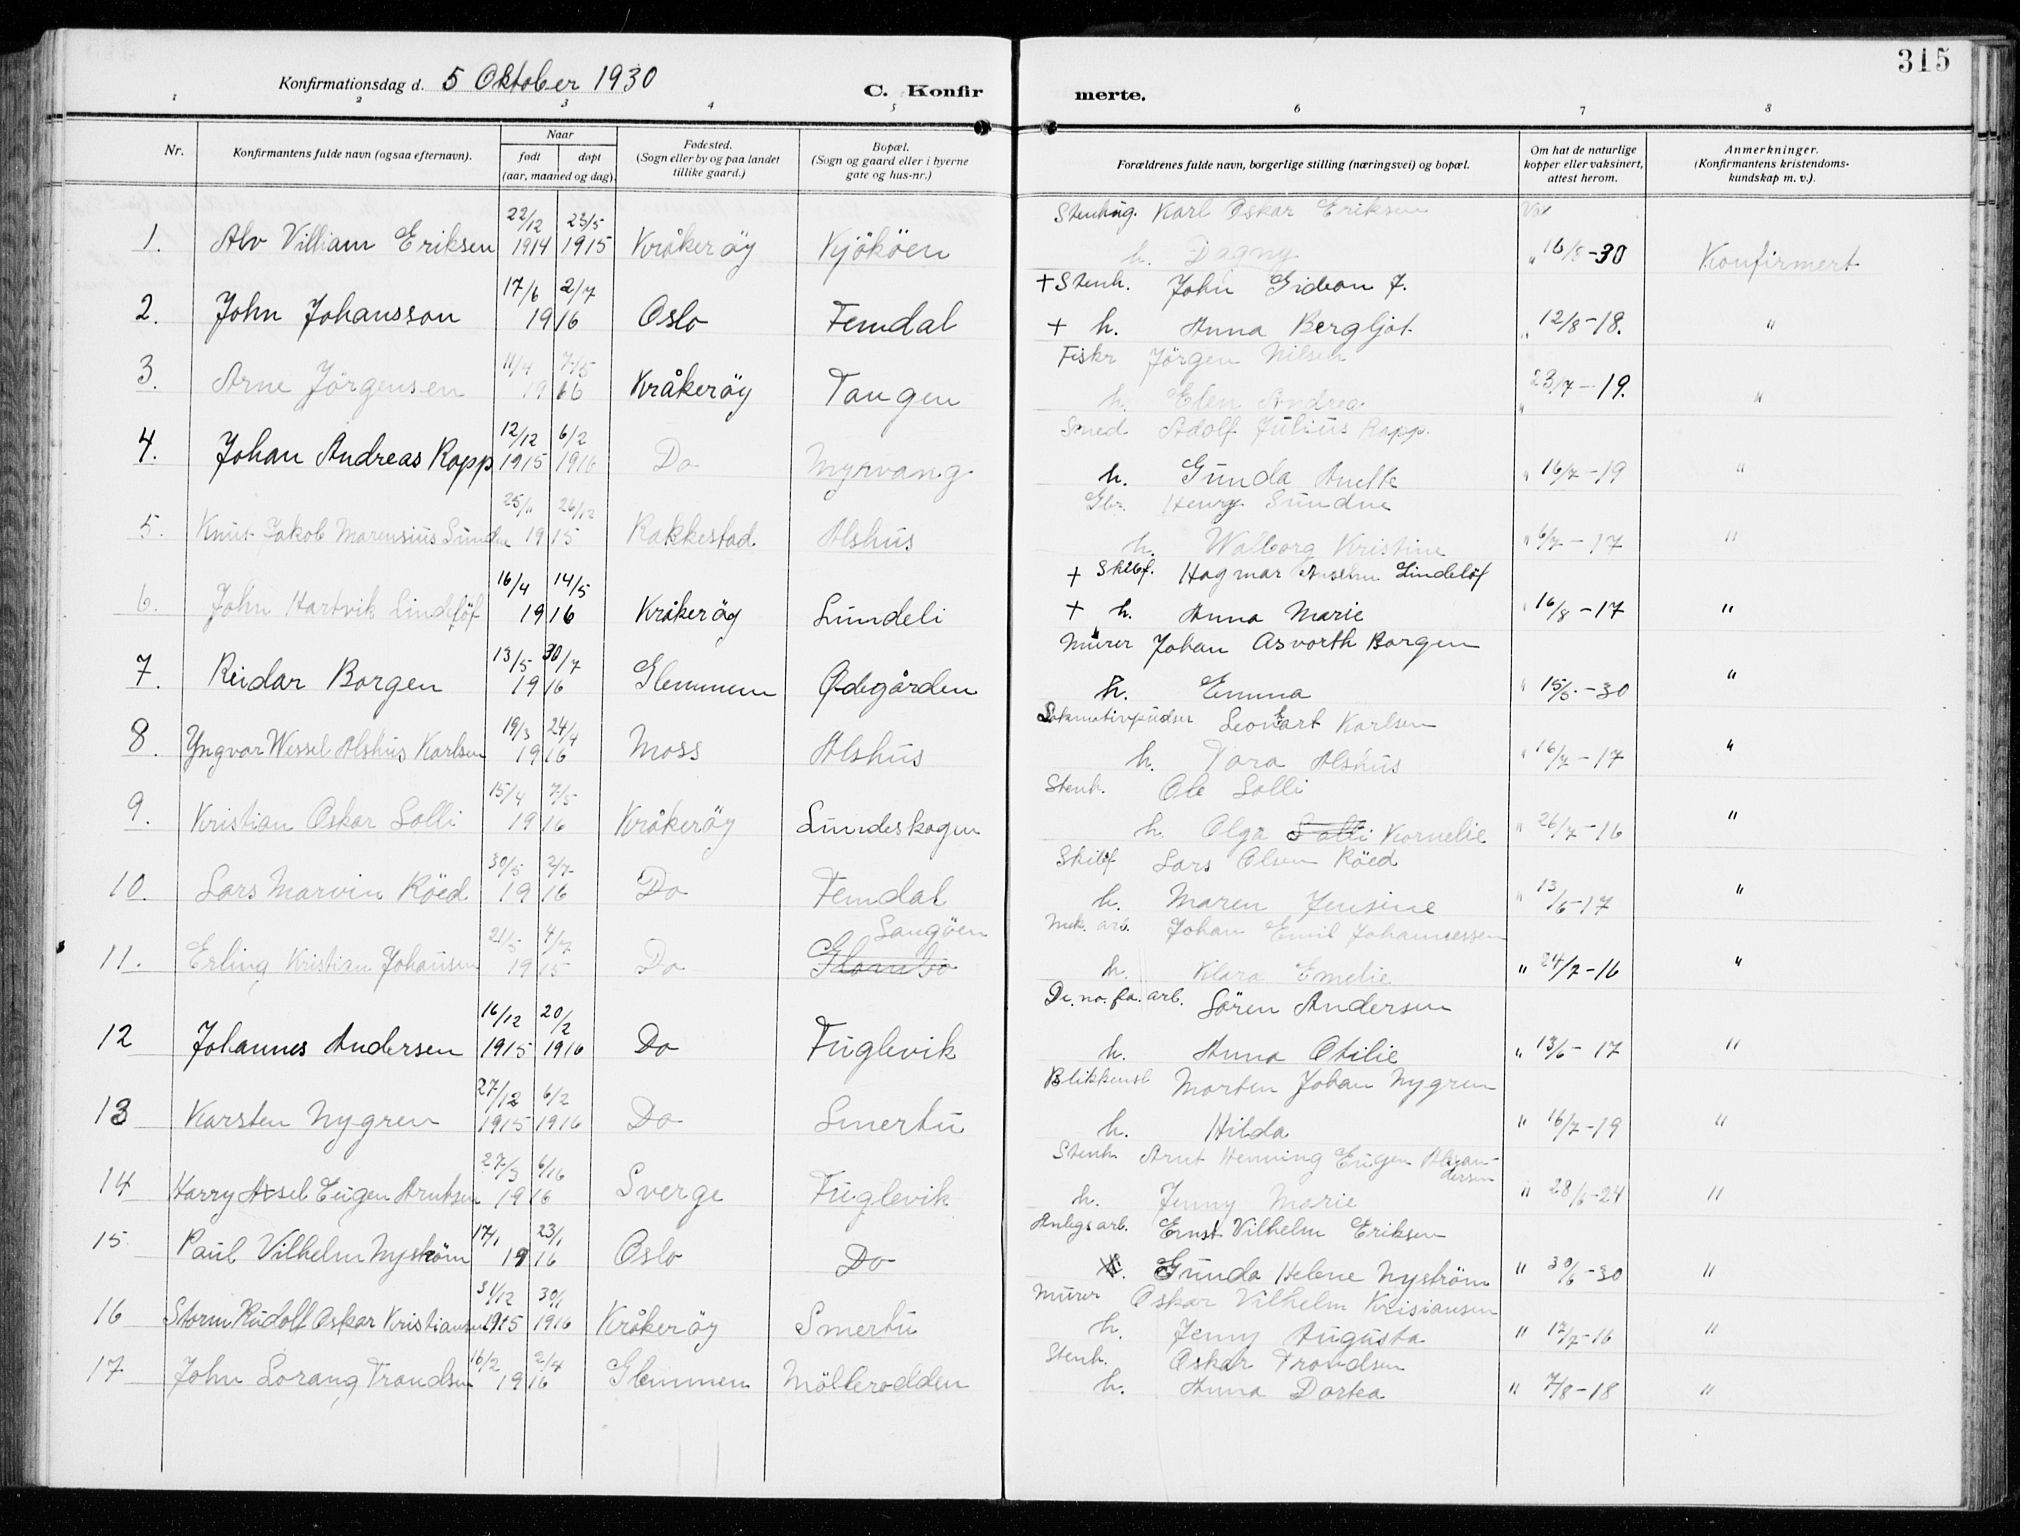 315
Konfirmationsdag d. 5 Oktober 1930
C. Konfir merte.
1 2 3 4 5 6 7 8
Nr.
Konfirmantens fulde navn (ogsaa efternavn).
Naar
født døpt
(aar, maaned og dag).
Fødested.
(Sogn eller by og paa landet
tillike gaard.)
Bopæl.
(Sogn og gaard eller i byerne
gate og hus-nr.)
Forældrenes fulde navn, borgerlige stilling (næringsvei) og bopæl.
Om hat de naturlige
kopper eller vaksinert,
attest herom.
Anmerkninger.
(Konfirmantens kristendoms-
kundskap m. v.).
22/12 23/5 Stenhug. Karl Oskar Eriksen Vax
1. Alv Villiam Eriksen 1914 1915 Kråkeröy Kjököen h. Dagny " 16/8-30 Konfirmert
17/6 2/7 + Stenh. John Gideon J.
2. John Johansson 1916 Oslo Femdal + h. Anna Bergljot " 12/8-18. "
11/4 7/5 Fiskr Jörgen Nilsen
3. Arne Jörgensen 1916 Kråkeröy Tangen h. Elen Andrea " 23/7-19. "
12/12 6/2 Smed Adolf Julius Rapp.
4. Johan Andreas Rapp 1915 1916 Do Myrvang h. Gunda Anette " 16/7-19 "
26/12 Gbr. Henry Sundne
5. Knut Jakob Marensius Sundne 1915 Rakkestad Alshus h. Walborg Kristine " 6/7-17 "
16/4 14/5 + Skibf. Hagmar Anselm Lindelöf
6. John Hartvik Lindelöf 1916 Kråkeröy Lundeli + h. Anna Marie " 16/8-17 "
13/5 30/7 Murer Johan Asvorth Borgen
7. Reidar Borgen 1916 Glemmem Ødegården h. Emma " 15/5-30 "
19/3 24/4 Lokomotivpudser Leonhart Karlsen
8. Yngvar Wessel Alshus Karlsen 1916 Moss Alshus h. Tora Alshus " 16/7-17 "
15/4 7/5 Stenh. Ole Solli
9. Kristian Oskar Solli 1916 Kråkeröy Lundeskogen h. Olga Solli Kornelie " 26/7-16 "
30/5 2/7 Skibf Lars Olsen Röed
10. Lars Marvin Röed 1916 Do Femdal h. Maren Jensine " 13/6-17 "
21/5 4/7 Langöen Mek. arb. Johan Emil Johannessen
11. Erling Kristian Johansen 1915 Do Glombo h. Klara Emelie " 24/7-16 "
16/12 20/2 De. no. fa. arb. Sören Andersen
12 Johannes Andersen 1915 1916 Do Fuglevik h. Anna Otilie " 13/6-17 "
27/12 6/2 Blikkensl Morten Johan Nygren
13 Karsten Nygren 1915 1916 Do Smertu h. Hilda " 16/7-19 "
27/3 6/16 Stenh. Arnt Henning Eugen Alexan-
dersen
14 Harry Aksel Eugen Arntsen 1916 Sverge Fuglevik h. Jenny Marie " 28/6-24 "
17/1 23/1 Anlegsarb. Ernst Vilhelm Eriksen
15 Paul Vilhelm Nyström 1916 Oslo Do Gunda Helene Nyström " 30/6-30 "
31/12 30/1 Murer Oskar Vilhelm Krisiansen
16 Storm Rudolf Oskar Kristiansen 1915 1916 Kråkeröy Smertu h. Jenny Augusta " 17/7-16 "
16/2 2/4 Stenh. Oskar Trondsen
17 John Lorang Trondsen 1916 Glemmen Möllerodden h. Anna Dortea " 7/8-18 "